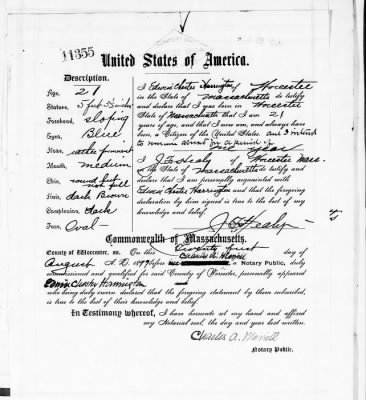 11355
United States of America.
Description.
Age, 21
Stature, 5 feet
Forehead, sloping
Eyes, Blue
Nose, rather prominent
Mouth, medium
Chin, round but
not full
Hair, dark Brown
Complexion, dark
Face, Oval
I Edwin Chester Harrington of Worcester
in the State of Massachusetts do testify
and declare that I was born in Worcester
State of Massachusetts that I am 21
years of age, and that I am now, and always have
been, a Citizen of the United States. and I intend
to remain abroad for a period of
one year
I J.F. Healy of Worcester Mass.
in the State of Massachusetts do testify and
declare that I am personally acquainted with
Edwin Chester Harrington and that the foregoing
declaration by him signed is true to the best of my
knowledge and belief.
J F Healy
Commonwealth of Massachusetts.
County of Worcester, ss. On this twenty first day of
August A. D. 1899 before me Charles A. Merrill a Notary Public, duly
commissioned and qualified for said County of Worcester, personally appeared
Edwin Chester Harrington
who being duly sworn declared that the foregoing statement by them subscribed,
is true to the best of their knowledge and belief.
In Testimony whereof, I have hereunto set my hand and affixed
my Notarial seal, the day and year last written.
Charles A. Merrill
Notary Public.